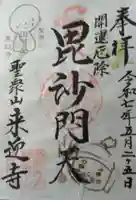 奉拝
令和七年五月二十五日
開運厄除
毘沙門天
聖衆山来迎寺